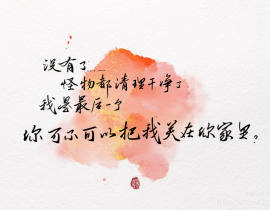 没有了……
怪物都清理干净了
我是最后一个
你可不可以把我关在你家里。